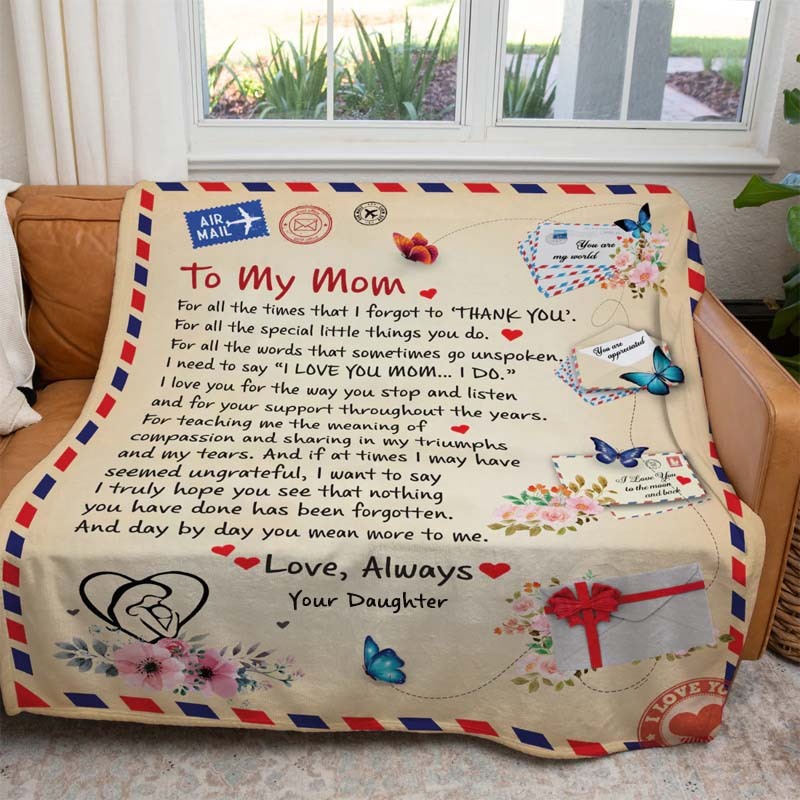 AIR
MAIL
To My Mom
For all the times that I forgot to 'THANK YOU'.
For all the special little things you do.
For all the words that sometimes go unspoken,
I need to say "I LOVE YOU MOM... I DO."
I love you for the way you stop and listen
and for your support throughout the years.
For teaching me the meaning of
compassion and sharing in my triumphs
and my tears. And if at times I may have
seemed ungrateful, I want to say
I truly hope you see that nothing
you have done has been forgotten.
And day by day you mean more to me.
Love, Always
Your Daughter
You are
my world
You are
appreciated
I Love You
to the moon
and back
I LOVE YOU